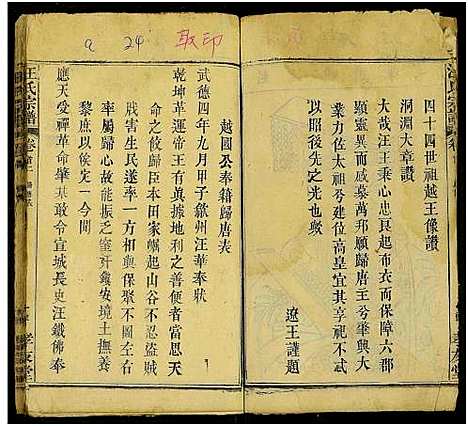 四十四世祖越王像讚
洞淵大章讚
大哉汪王秉心忠良起布衣而保障六郡
顯靈異而威慕萬邦願歸唐王兮肇興
業力佐太祖兮建位高皇宜其享祀不忒
以昭後先之光也與
遼王謹題
越國公奉籍歸唐表
武德四年九月甲子歙州汪華奉狀
乾坤革運帝王有眞據地利之善便者當思天
命之歸臣本田家崛起山谷不忍盜賊
戕害生民遂率一方共與保聚不圖左右
率屬歸心故能振乏室奸鎭安境土撫養
黎庶以俟定一今聞
應天受禪革命肇基敢令宣城長史汪鐵佛奉
汪氏宗譜
卷首
9 24 敢印